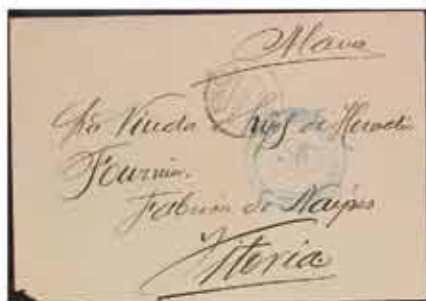 Alava
Viuda e hijos de Heraclio
Fournier.
Fabrica de Naipes
Vitoria